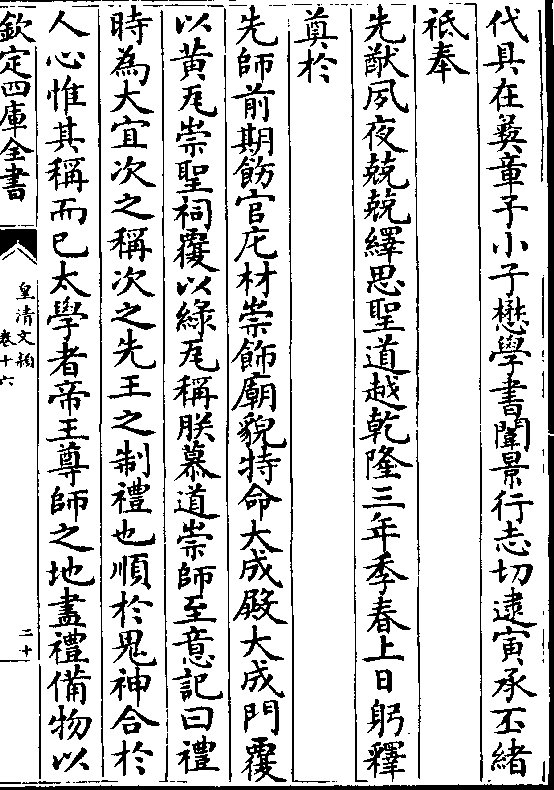 代具在彝章予小子懋學書聞景行志切逮寅承丕緒
祗奉
先猷夙夜兢兢繹思聖道越乾隆三年季春上日躬釋
奠於
先師前期飭官庀材崇飾廟貌特命大成殿大成門覆
以黃瓦崇聖祠覆以綠瓦稱朕慕道崇師至意記曰禮
時為大宜次之稱次之先王之制禮也順於鬼神合於
人心惟其稱而已太學者帝王尊師之地盡禮備物以
欽定四庫全書
皇清文穎
卷十六
二十